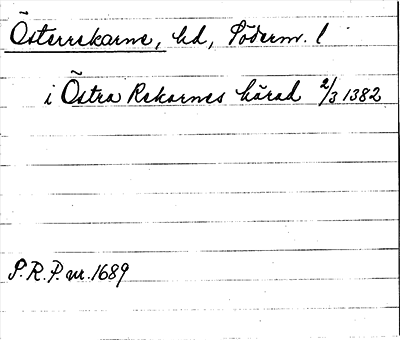 Österrekarne, hd, Söderm. l
i Östra Rekarnes härad 2/3 1382
S.R.P. nr. 1689